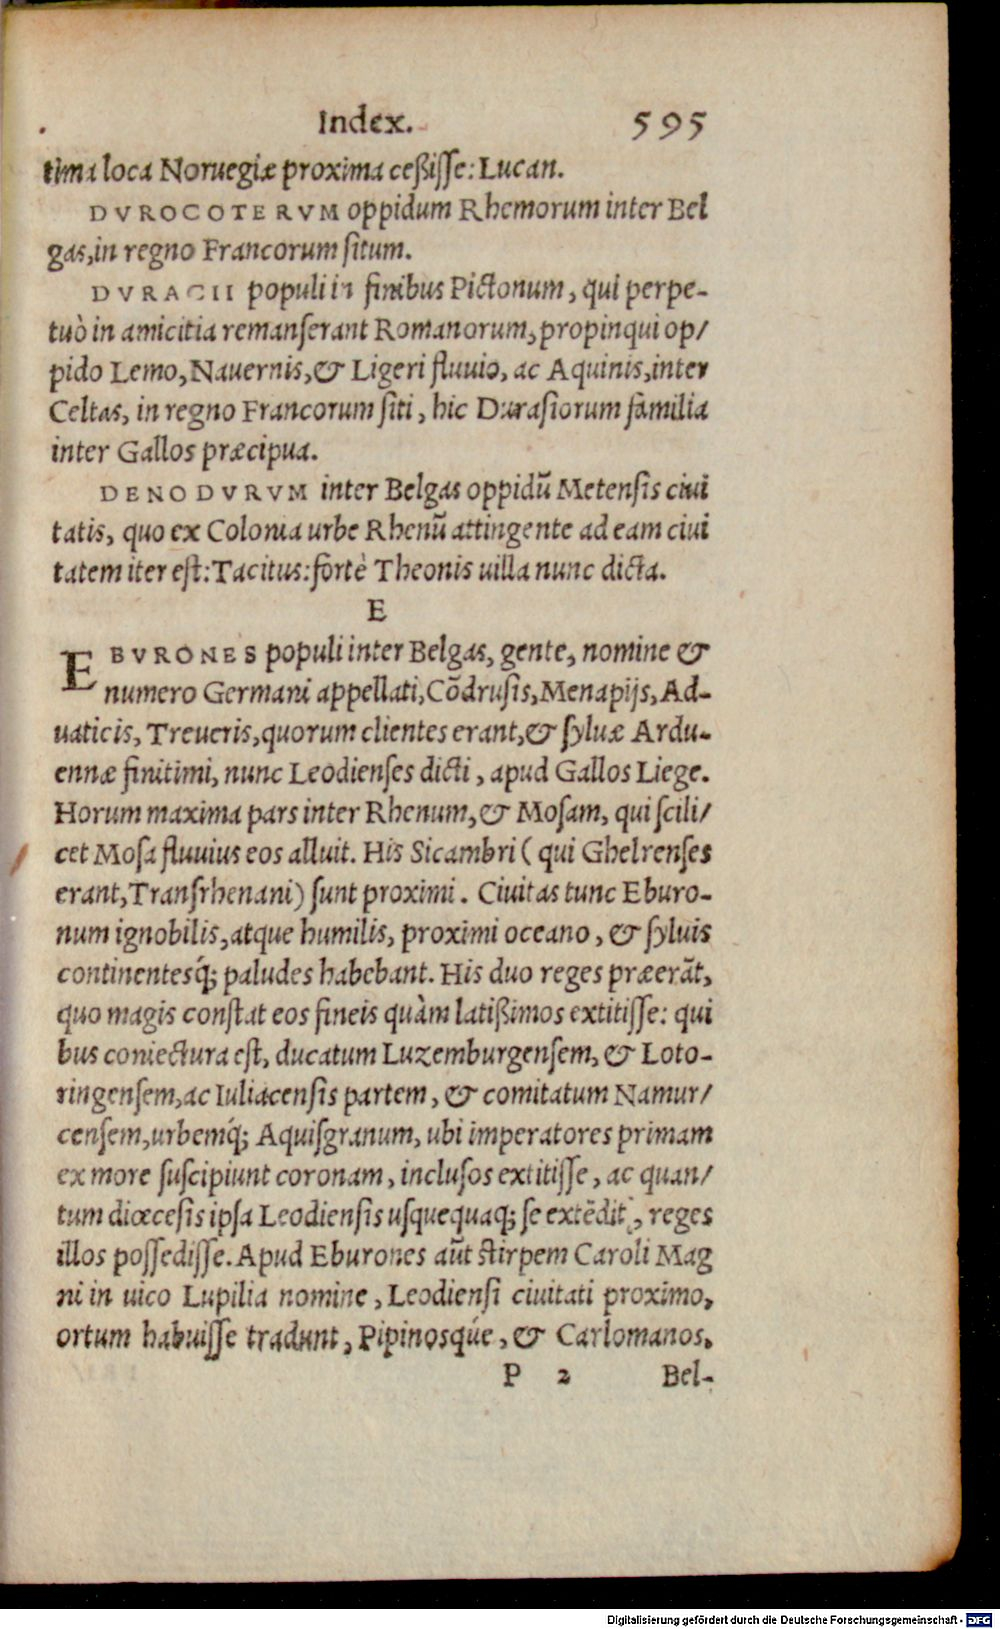 Index. 595
tima loca Noruegiæ proxima ceßiſſe: Lucan.
DVROCOTERVM oppidum Rhemorum inter Bel
gas, in regno Francorum ſitum.
DVRACII populi in finibus Pictonum, qui perpe-
tuò in amicitia remanſerant Romanorum, propinqui op/
pido Lemo, Nauernis, & Ligeri fluuio, ac Aquinis, inter
Celtas, in regno Francorum ſiti, hic Duraſiorum familia
inter Gallos præcipua.
DENODVRVM inter Belgas oppidū Metenſis ciui
tatis, quo ex Colonia urbe Rhenū attingente ad eam ciui
tatem iter eſt: Tacitus: fortè Theonis uilla nunc dicta.
E
EBVRONES populi inter Belgas, gente, nomine &
numero Germani appellati, Cōdruſis, Menapijs, Ad-
uaticis, Treueris, quorum clientes erant, & ſyluæ Ardu-
ennæ finitimi, nunc Leodienſes dicti, apud Gallos Liege.
Horum maxima pars inter Rhenum, & Moſam, qui ſcili/
cet Moſa fluuius eos alluit. His Sicambri ( qui Ghelrenſes
erant, Tranſrhenani) ſunt proximi. Ciuitas tunc Eburo-
num ignobilis, atque humilis, proximi oceano, & ſyluis
continentesq́; paludes habebant. His duo reges præerāt,
quo magis conſtat eos fineis quàm latißimos extitiſſe: qui
bus coniectura eſt, ducatum Luzemburgenſem, & Loto-
ringenſem, ac Iuliacenſis partem, & comitatum Namur/
cenſem, urbemq́; Aquiſgranum, ubi imperatores primam
ex more ſuſcipiunt coronam, incluſos extitiſſe, ac quan/
tum diœceſis ipſa Leodienſis uſquequaq; ſe extēdit, reges
illos poſſediſſe. Apud Eburones aūt ſtirpem Caroli Mag
ni in uico Lupilia nomine, Leodienſi ciuitati proximo,
ortum habuiſſe tradunt, Pipinosqúe, & Carlomanos.
P 2 Bel-
Digitalisierung gefördert durch die Deutsche Forschungsgemeinschaft - DFG